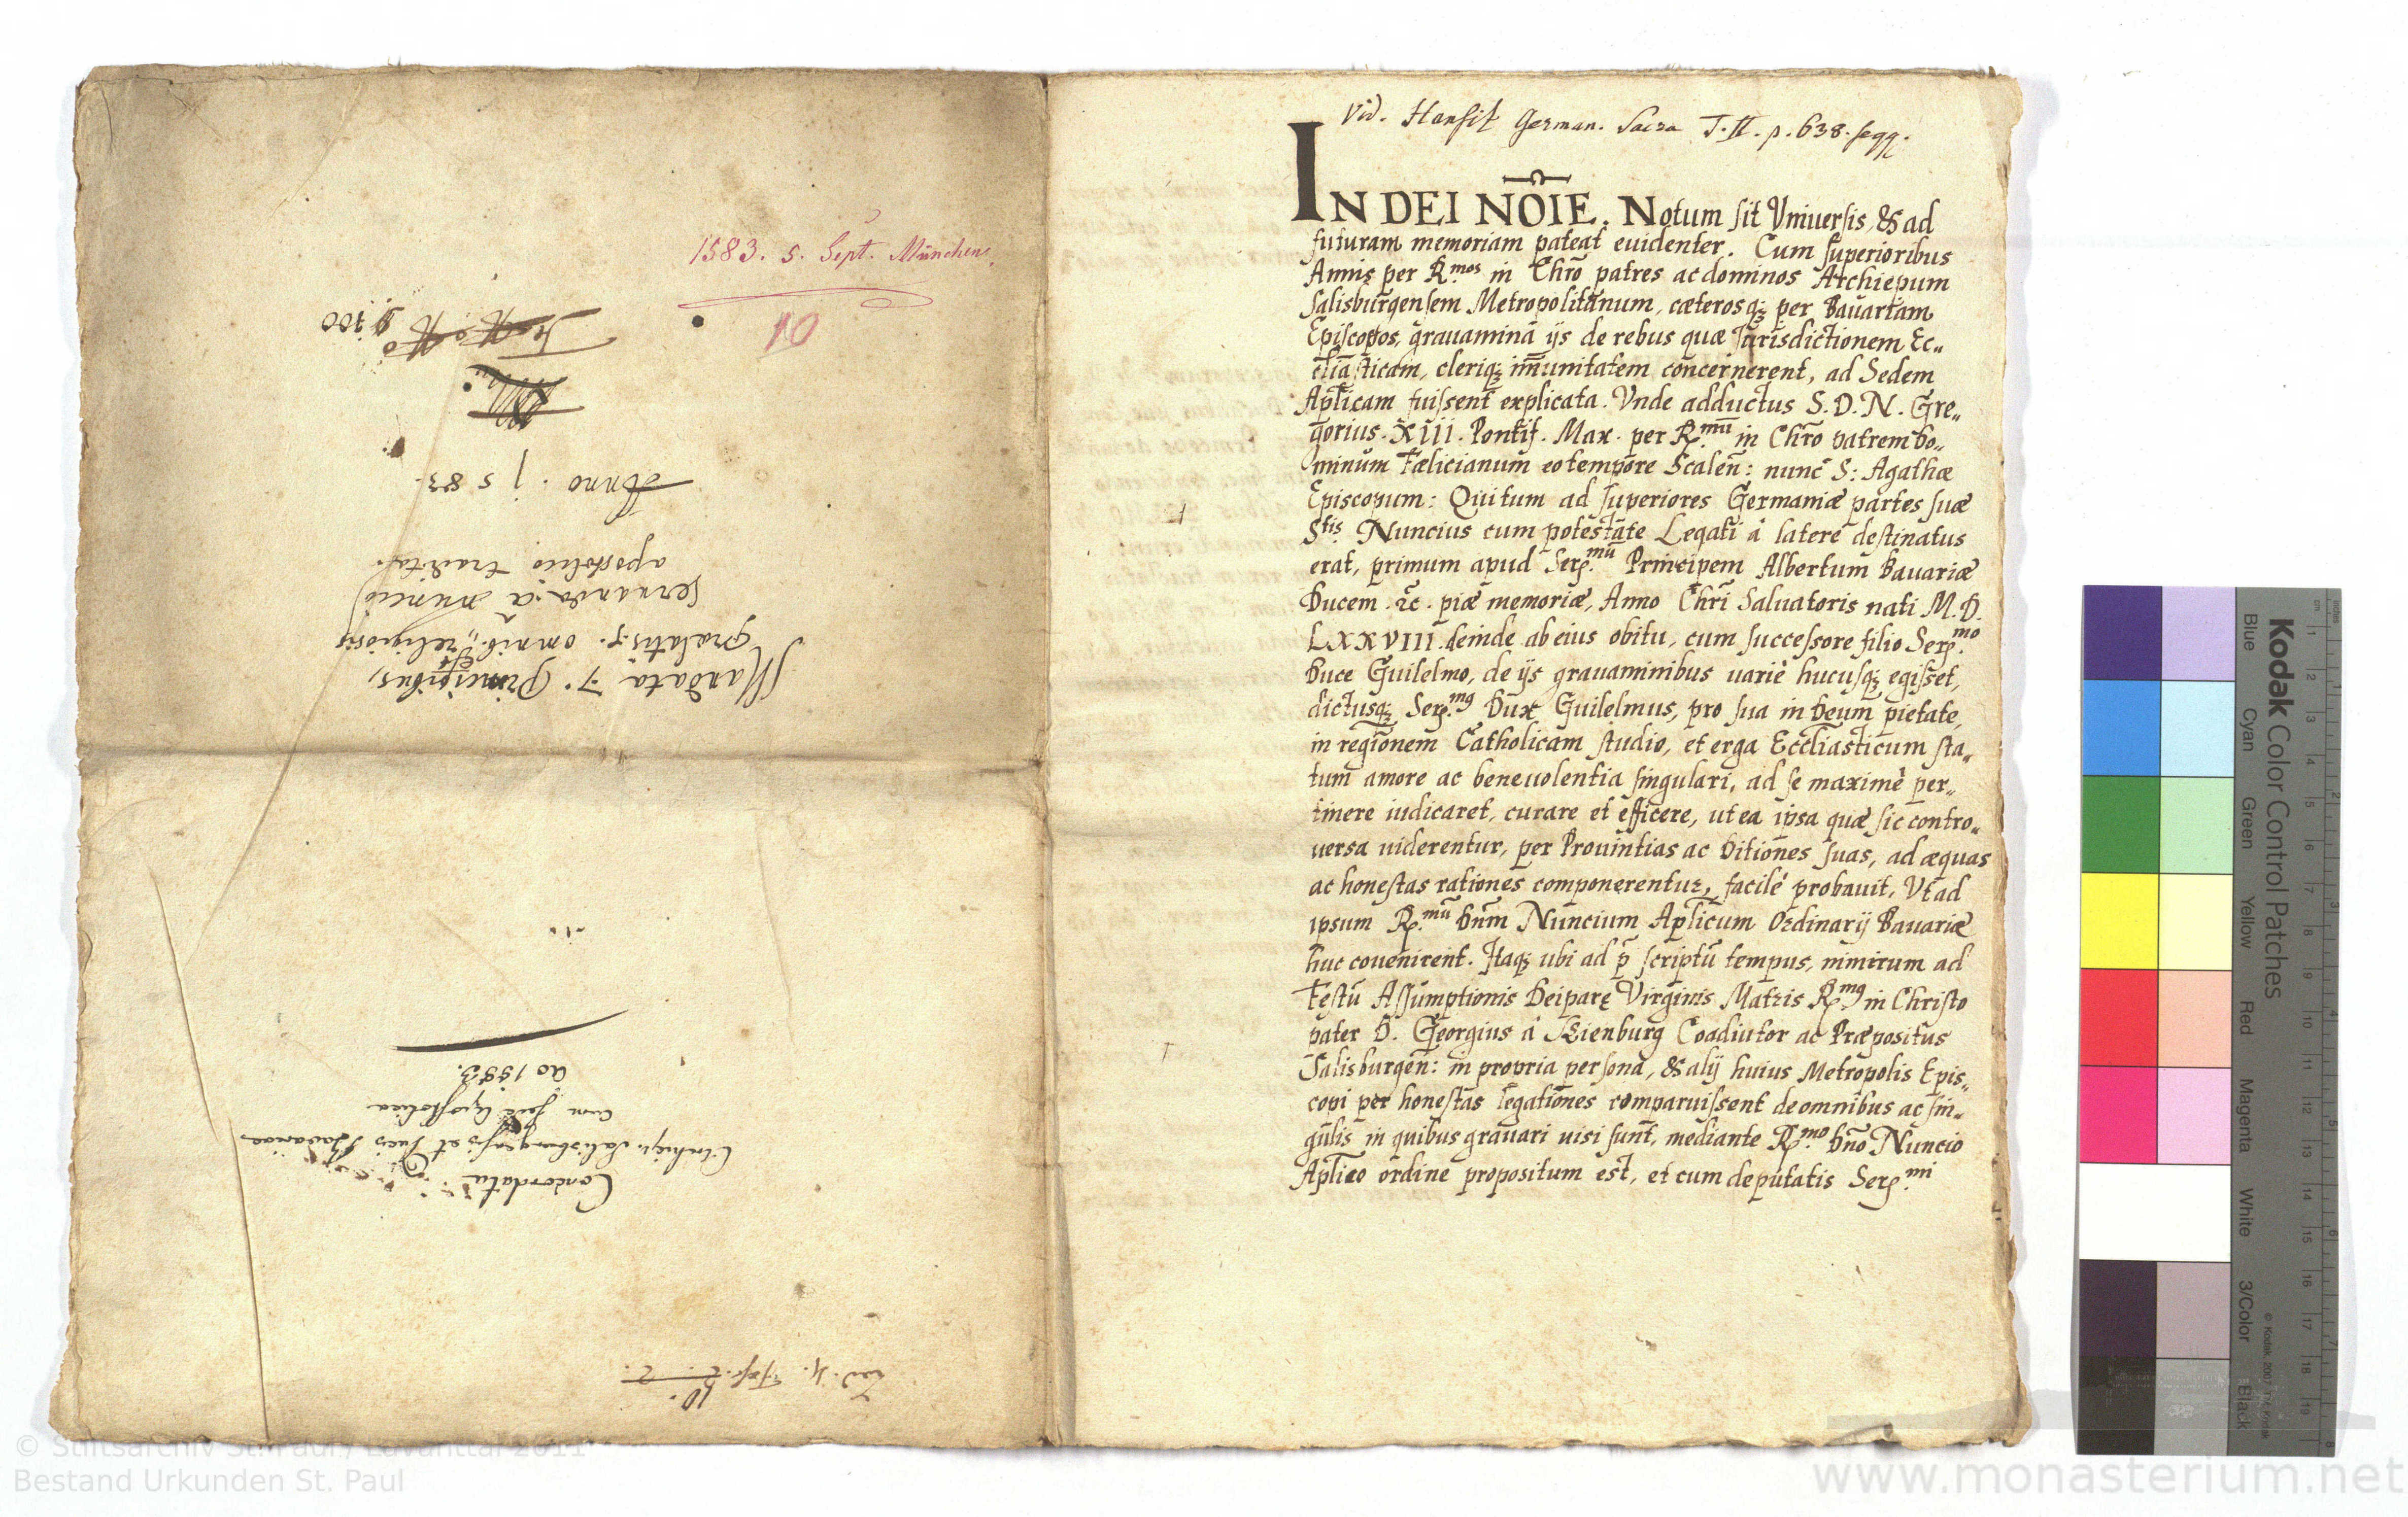 1583. 5. Sept. München.
10
Anno . 1583.
Mandata 7. Principibus,
prælatis. omnib. religiosis
seruanda. a nuncio
apostolico tradita.
Concordata
Archiepi. Salisburgensis et Ducis Bavariae
cum sede Apostolica
ao 1583.
Vid. Hansiz German. Sacra T. II. p. 638. seqq.
IN DEI NOĪE. Notum sit Vniuersis, & ad
futuram memoriam pateat euidenter. Cum superioribus
Annis per R.mos in Chrō patres ac dominos Archiepum
Salisburgensem Metropolitanum, cæterosq; per Bauariam
Episcopos, grauamina ijs de rebus quæ Jurisdictionem Ec„
cl̄iasticam, cleriq; im̄unitatem concernerent, ad Sedem
Apl̄icam fuissent explicata. Vnde adductus S. D. N. Gre„
gorius. XIII. Pontif. Max. per R.mū in Chrō patrem Do„
minum Fælicianum eo tempore Scalen̄: nunc S: Agathæ
Episcopum: Qui tum ad superiores Germaniæ partes suæ
S.tis Nuncius cum potestate Legati à latere destinatus
erat, primum apud Ser.mū Principem Albertum Bauariæ
Ducem . &c . piæ memoriæ, Anno Chrī Saluatoris nati M.D.
LXXVIII. deinde ab eius obitu, cum successore filio Ser.mo
Duce Guilelmo, de ijs grauaminibus uariè hucusq; egisset,
dictusq; Ser.mq Dux Guilelmus, pro sua in Deum pietate,
in regionem Catholicam studio, et erga Eccl̄iasticum sta„
tum amore ac beneuolentia singulari, ad se maximè per„
tinere iudicaret, curare et efficere, ut ea ipsa quæ sic contro„
uersa uiderentur, per Prouintias ac Ditiones suas, ad æquas
ac honestas rationes componerentur, facilè probauit, Vt ad
ipsum R.mū Dn̄m Nuncium Apl̄icum Ordinarij Bauariæ
huc couenirent. Itaq; ubi ad p̄scriptū tempus, nimirum ad
Festū Assumptionis Deiparę Virginis Matris R.mq in Christo
pater D. Georgius à Kienburg Coadiutor ac Præpositus
Salisburgen̄: in propria persona, & alij huius Metropolis Epis„
copi per honestas legationes comparuissent de omnibus ac sin„
gulis in quibus grauari uisi sunt, mediante R.mo Dn̄o Nuncio
Apl̄ico ordine propositum est, et cum deputatis Ser.mi
Kodak Color Control Patches
Blue Cyan Green Yellow Red Magenta White 3/Color Black
© Stiftsarchiv St. Paul / Lavanttal 2011
Bestand Urkunden St. Paul
www.monasterium.net